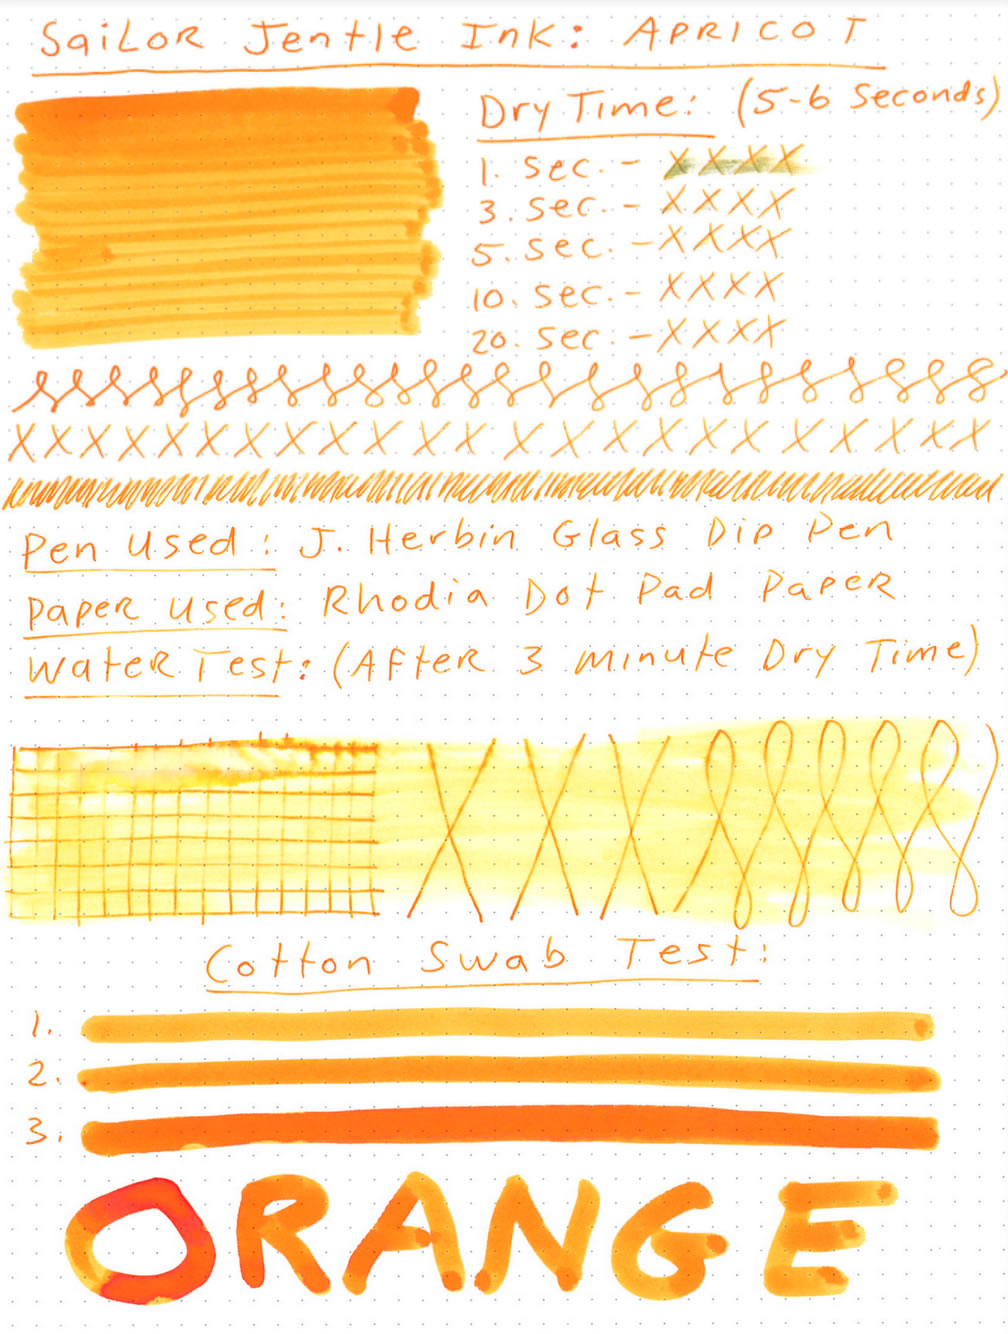 Sailor Jentle Ink: Apricot
Dry Time: (5-6 Seconds)
1. sec. - X X X X
3. sec. - X X X X
5. sec. - X X X X
10. sec. - X X X X
20. sec. - X X X X
X X X X X X X X X X X X X X X X X X X X X X X X X X
Pen Used: J. Herbin Glass Dip Pen
Paper Used: Rhodia Dot Pad Paper
Water Test: (After 3 minute Dry Time)
X X X
Cotton Swab Test:
1.
2.
3.
ORANGE